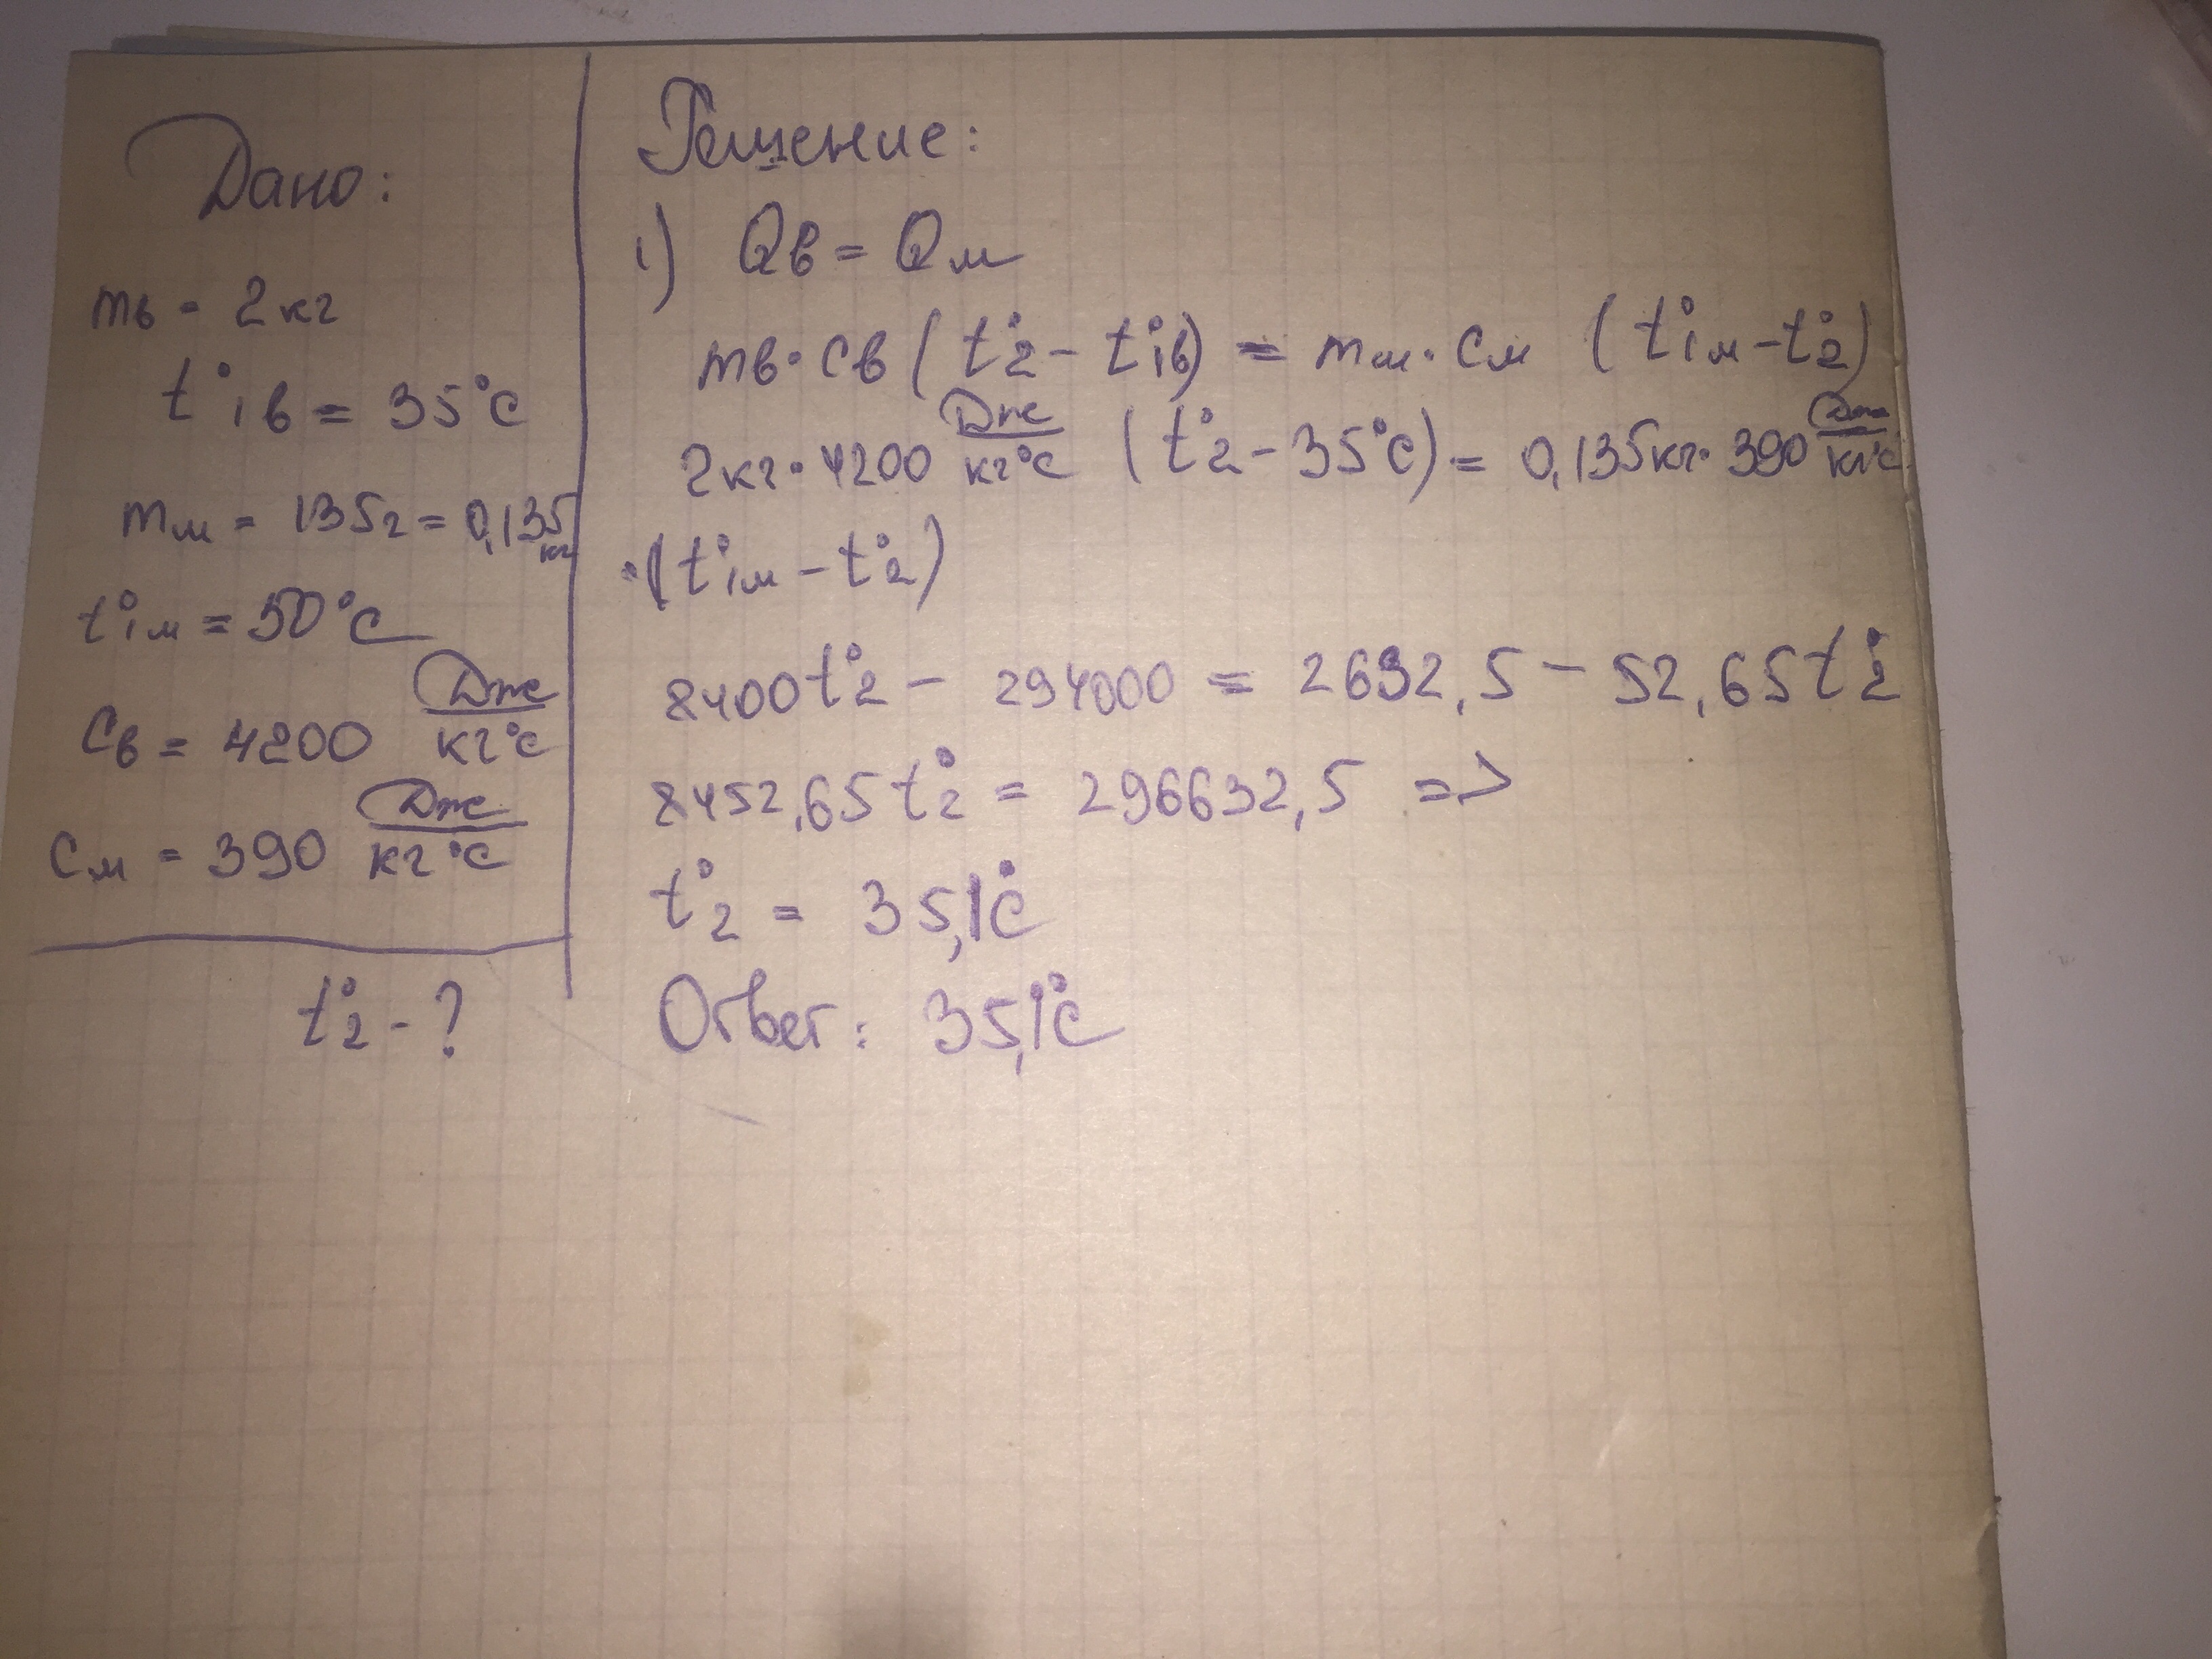 Дано:
mв = 2 кг
t°1в = 35°C
mм = 135 г = 0,135 кг
t°1м = 50°C
Cв = 4200 Дж/кг°C
Cм = 390 Дж/кг°C
t°2 - ?
Решение:
1) Qв = Qм
mв · Cв (t°2 - t°1в) = mм · Cм (t°1м - t°2)
2кг · 4200 Дж/кг°C (t°2 - 35°C) = 0,135кг · 390 Дж/кг°C
·(t°1м - t°2)
8400t°2 - 294000 = 2632,5 - 52,65t°2
8452,65t°2 = 296632,5 =>
t°2 = 35,1°C
Ответ: 35,1°C